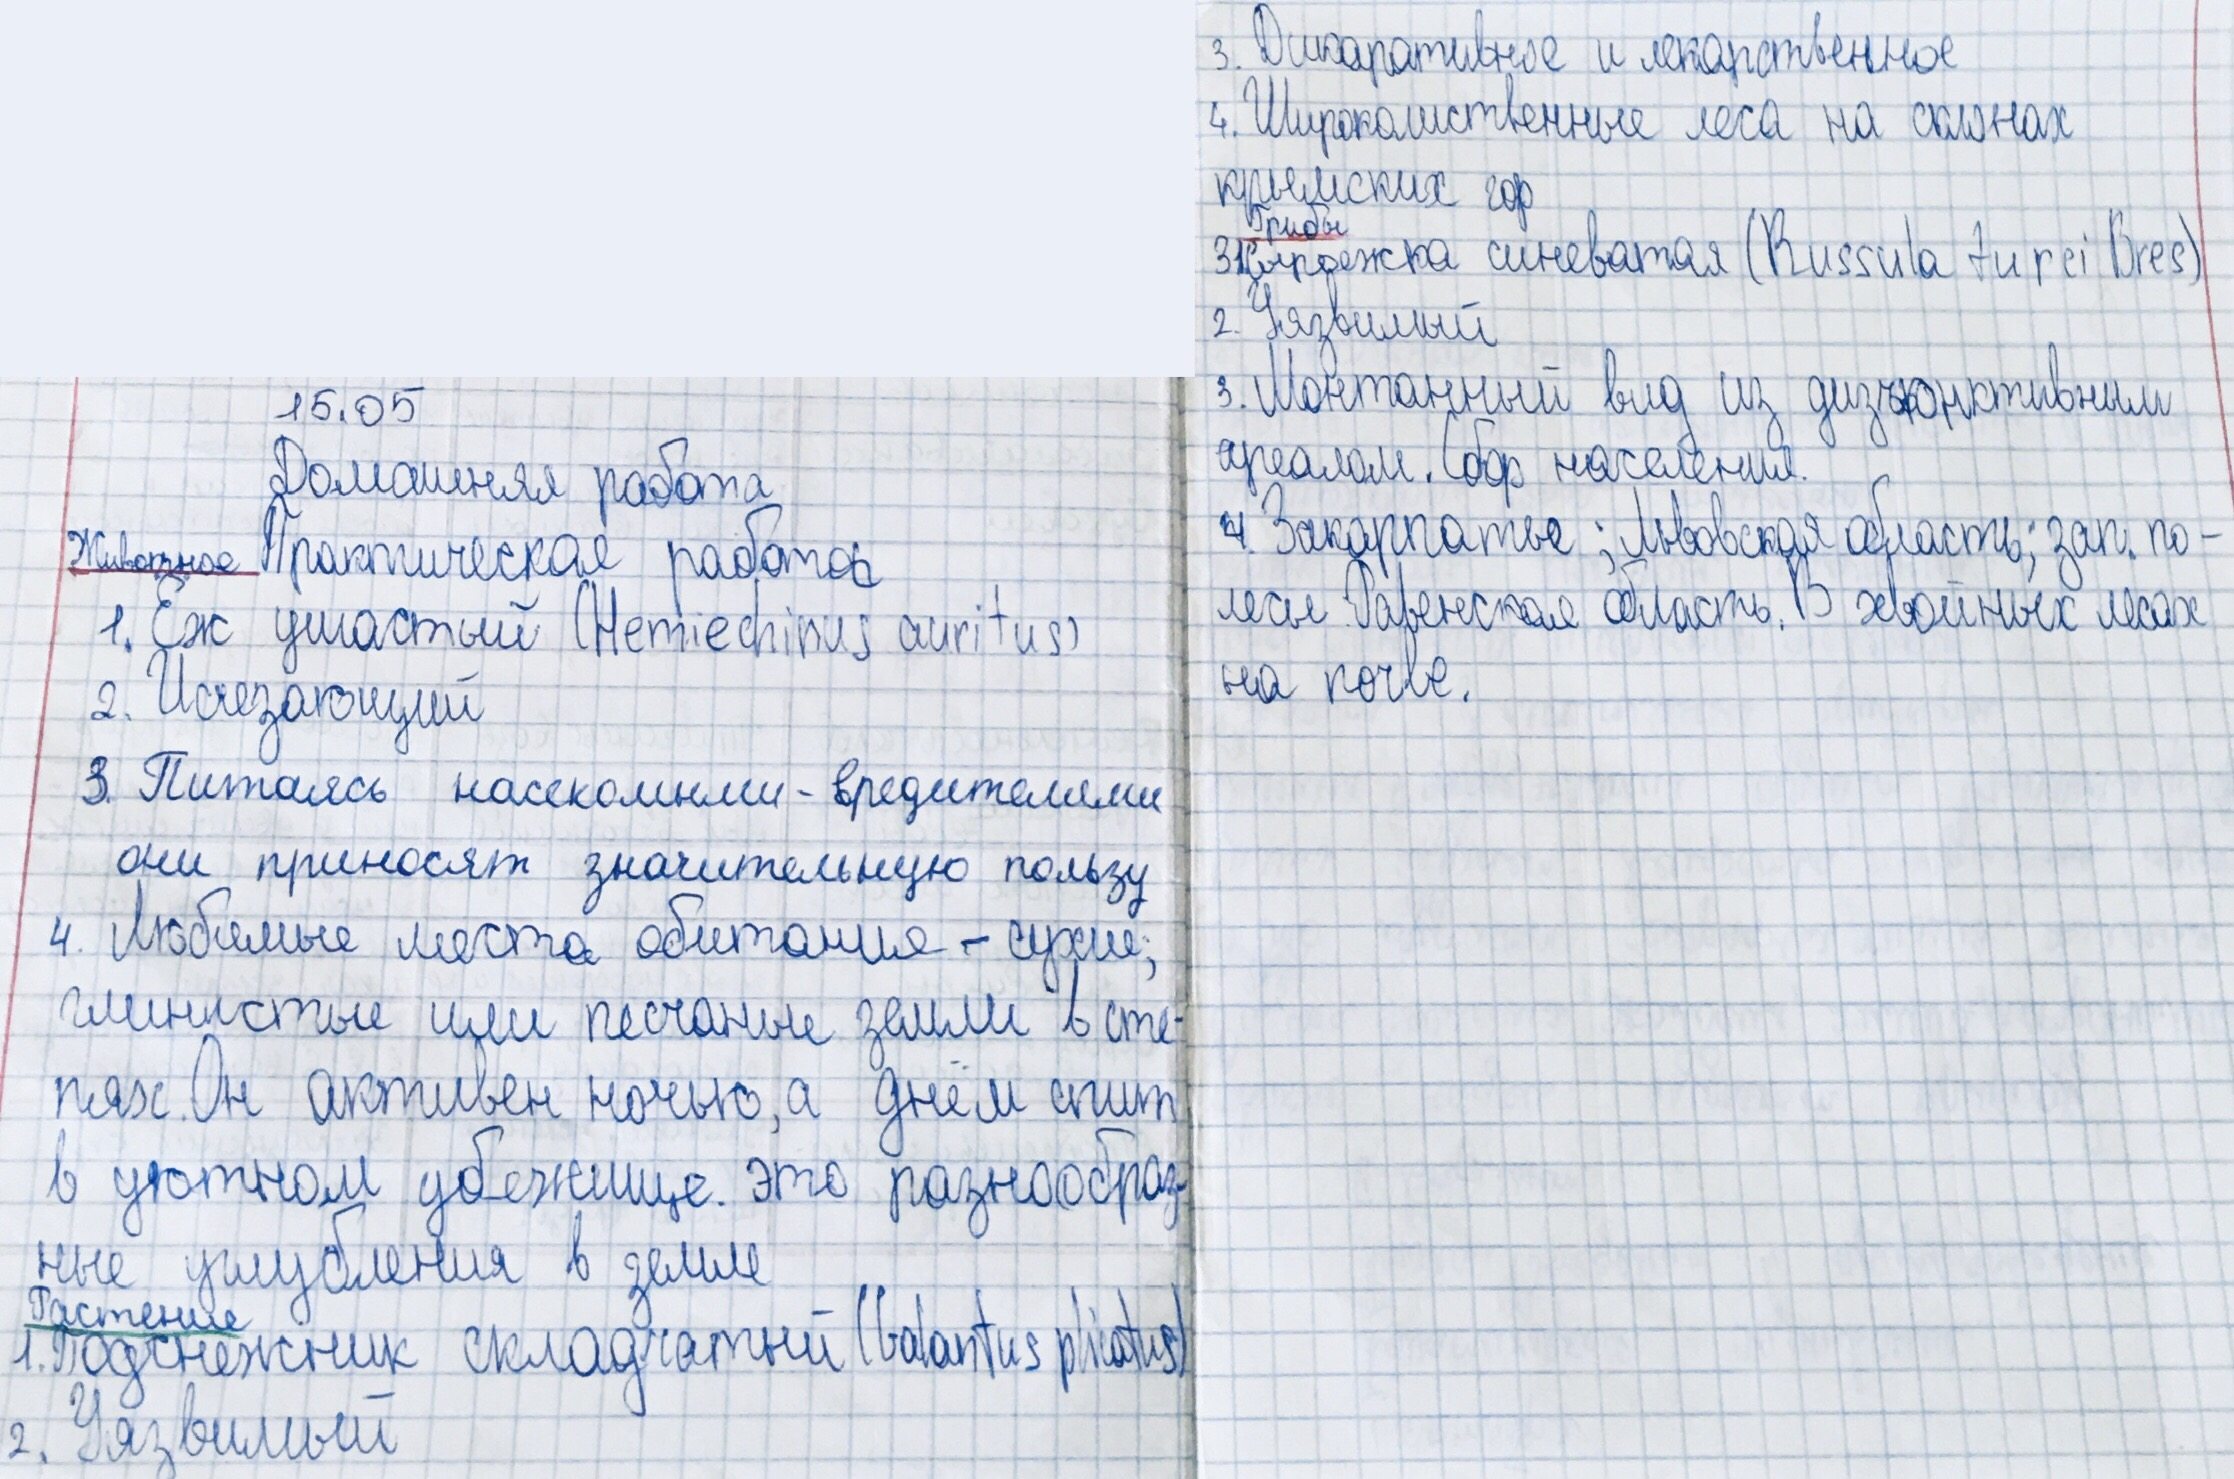 15.05
Домашняя работа
Животное Практическая работа
1. Ёж ушастый (Hemiechinus auritus)
2. Исчезающий
3. Питаясь насекомыми - вредителями
они приносят значительную пользу
4. Любимые места обитания - сухие;
глинистые или песчаные земли в сте-
пях. Он активен ночью, а днём спит
в уютном убежище. это разнообраз-
ные углубления в земле
Растение
1. Подснежник складчатый (Galantus plicatus)
2. Уязвимый
3. Дикаративное и лекарственное
4. Широколиственные леса на склонах
крымских гор
Грибы
Сыроежка синеватая (Russula turci Bres)
2. Уязвимый
3. Монтанный вид из дизъюнктивным
ареалом. Сбор населения.
4. Закарпатье; Львовская область; зап. по-
лесье Равенская область. В хвойных лесах
на почве.